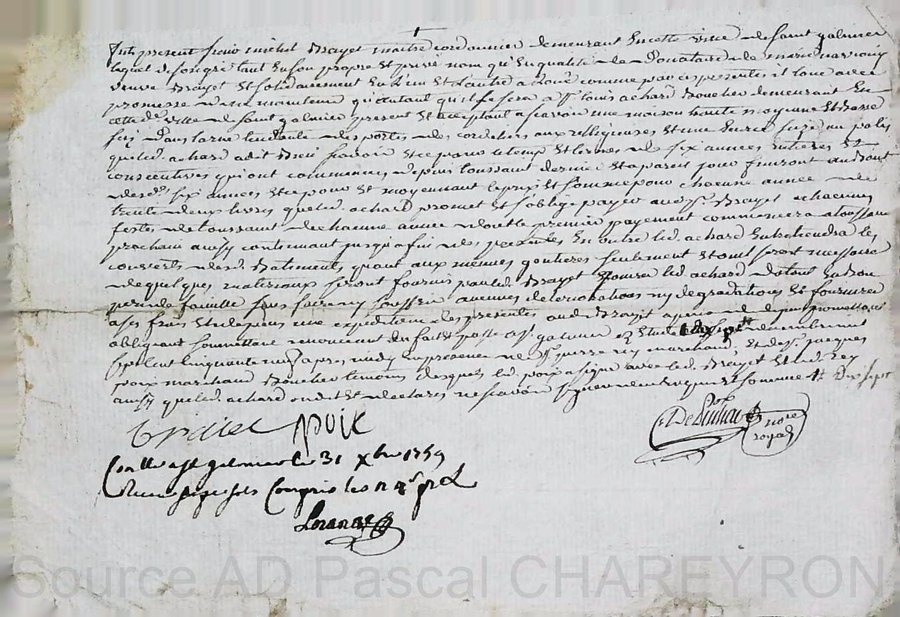 present michel Brayet maitre cordonnier demeurant en cette ville de saint galmier
lequel de son gré tant en son propre et privé nom qu'en qualité de Donataire de
veuve Brayet et solidairement l'un et l'autre a loué comme par ces presentes il loue avec
promesse de maintenir qu'autant qu'il se fera a Sr louis achard Boucher demeurant en
cette de ville de saint galmier present et acceptant a scavoir une maison haute moyenne et Basse
size Dans la rue tendante des portes de cordeliers aux religieuses et une size au
que led. achard a dit bien scavoir et ce pour le temps et termes de six années entieres et
consecutives qui ont commencées depuis toussaint dernier et a pareil jour finiront au Bout
desd. six années et ce pour et moyennant le prix et somme pour chacune année de
trente deux livres que led. achard promet et s'oblige payer aud. Sr Brayet a chacunes
festes de toussaint de chacune année dont le premier payement commencera a toussaint
prochain ainsy continuant jusqu'a fin des presentes en outre led. achard entretiendra les
couverts desd. Batiments quant aux menues goutieres seulement et ou il seroit necessaire
de quelques materiaux seront fournis par led. Brayet jouira led. achard du tout en Bon
pere de famille sans faire ny souffrir aucunes deteriorations ny degradations et fournira
a ses frais et depens une expedition des presentes aud. Brayet a peine de promettant
obligeant soumettant renonceant &a fait et passé a St galmier decembre
mil sept cent cinquante neuf apres midy en presence de Sr pierre rey marchand, et de Sr jacques
poix marchand Boucher temoins lesquels led. poix a signé avec led. Brayet et led. rey
ainsy que led. achard ont dit et declaré ne scavoir signer de ce requis et sommé
Braiet poix
notre
royal
Con.llé a St galmier le 31 Xbre 1759
Recu sols Compris les n 4s pr L